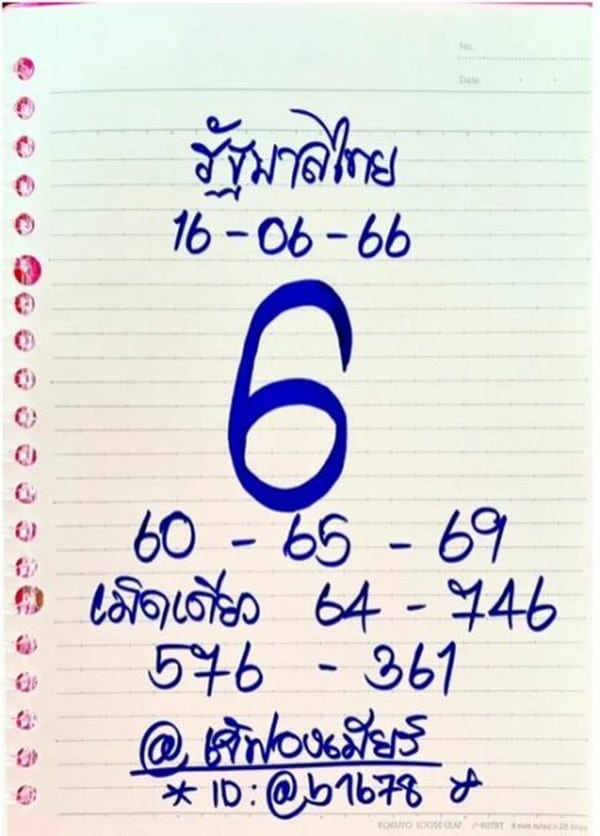 No.
Date
รัฐบาลไทย
16-06-66
6
60 - 65 - 69
เม็ดเดียว 64 - 746
576 - 361
@ เจ๊ฟองเบียร์
* ID: @b1678 *
KOKUYO LOOSE-LEAF